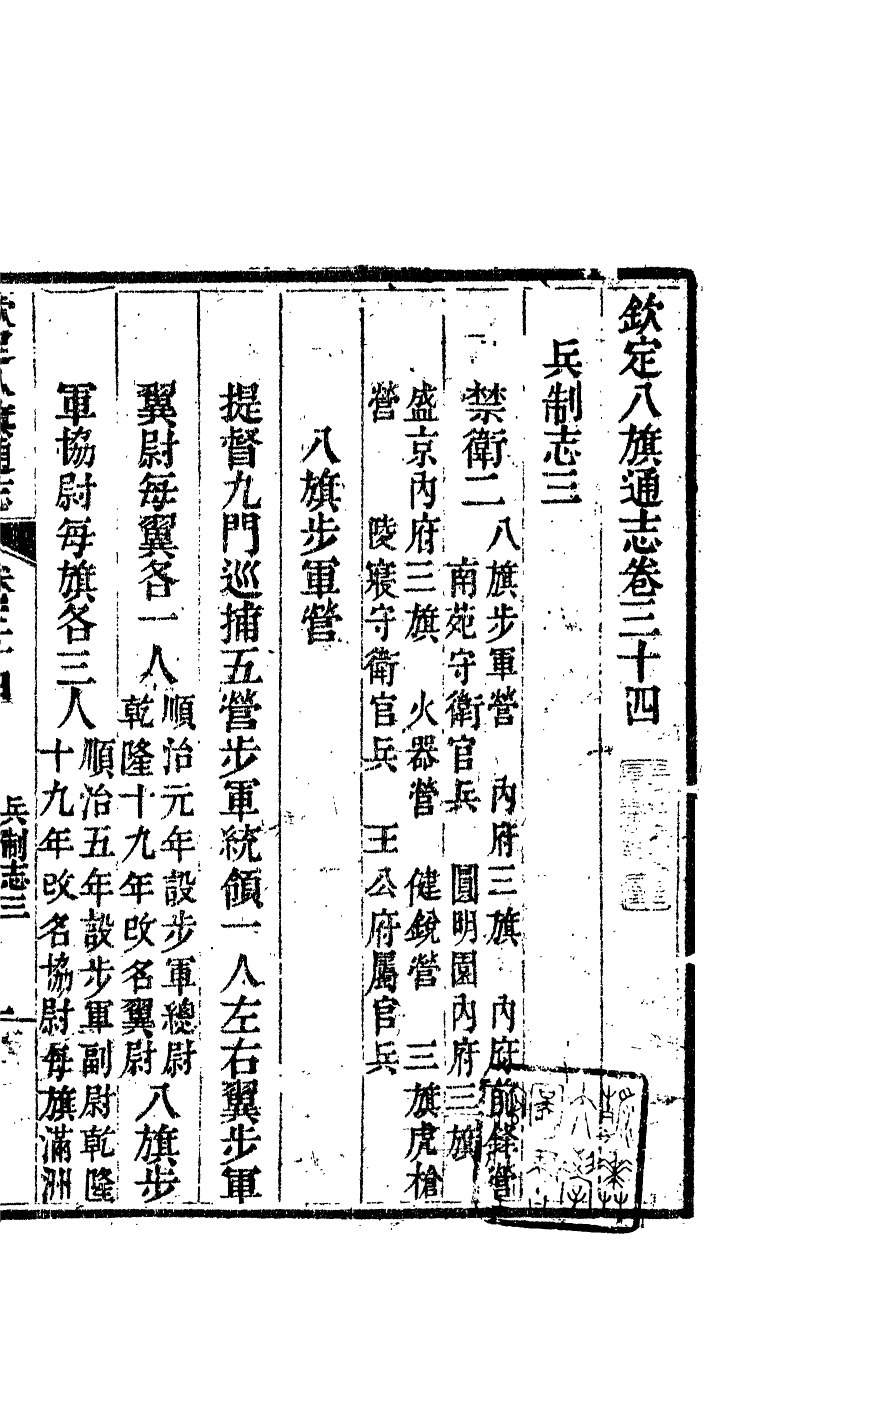 欽定八旗通志卷三十四
兵制志三
禁衛二
八旗步軍營　內府三旗　內府前鋒營
南苑守衛官兵　圓明園內府三旗
盛京內府三旗　火器營　健銳營　三旗虎槍
營　陵寢守衛官兵　王公府屬官兵
八旗步軍營
提督九門巡捕五營步軍統領一人左右翼步軍
翼尉每翼各一人
順治元年設步軍總尉
乾隆十九年改名翼尉
八旗步
軍協尉每旗各三人
順治五年設步軍副尉乾隆
十九年改名協尉每旗滿洲
兵制志三